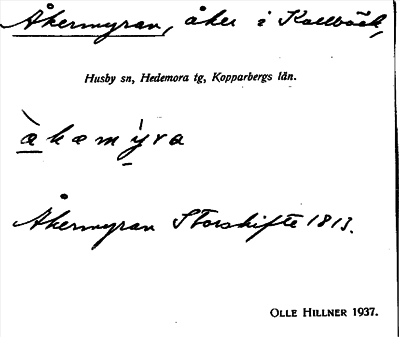 Åkermyran, åker i Kallbäck,
Husby sn, Hedemora tg, Kopparbergs län.
Åkermyran Storskifte 1813.
OLLE HILLNER 1937.